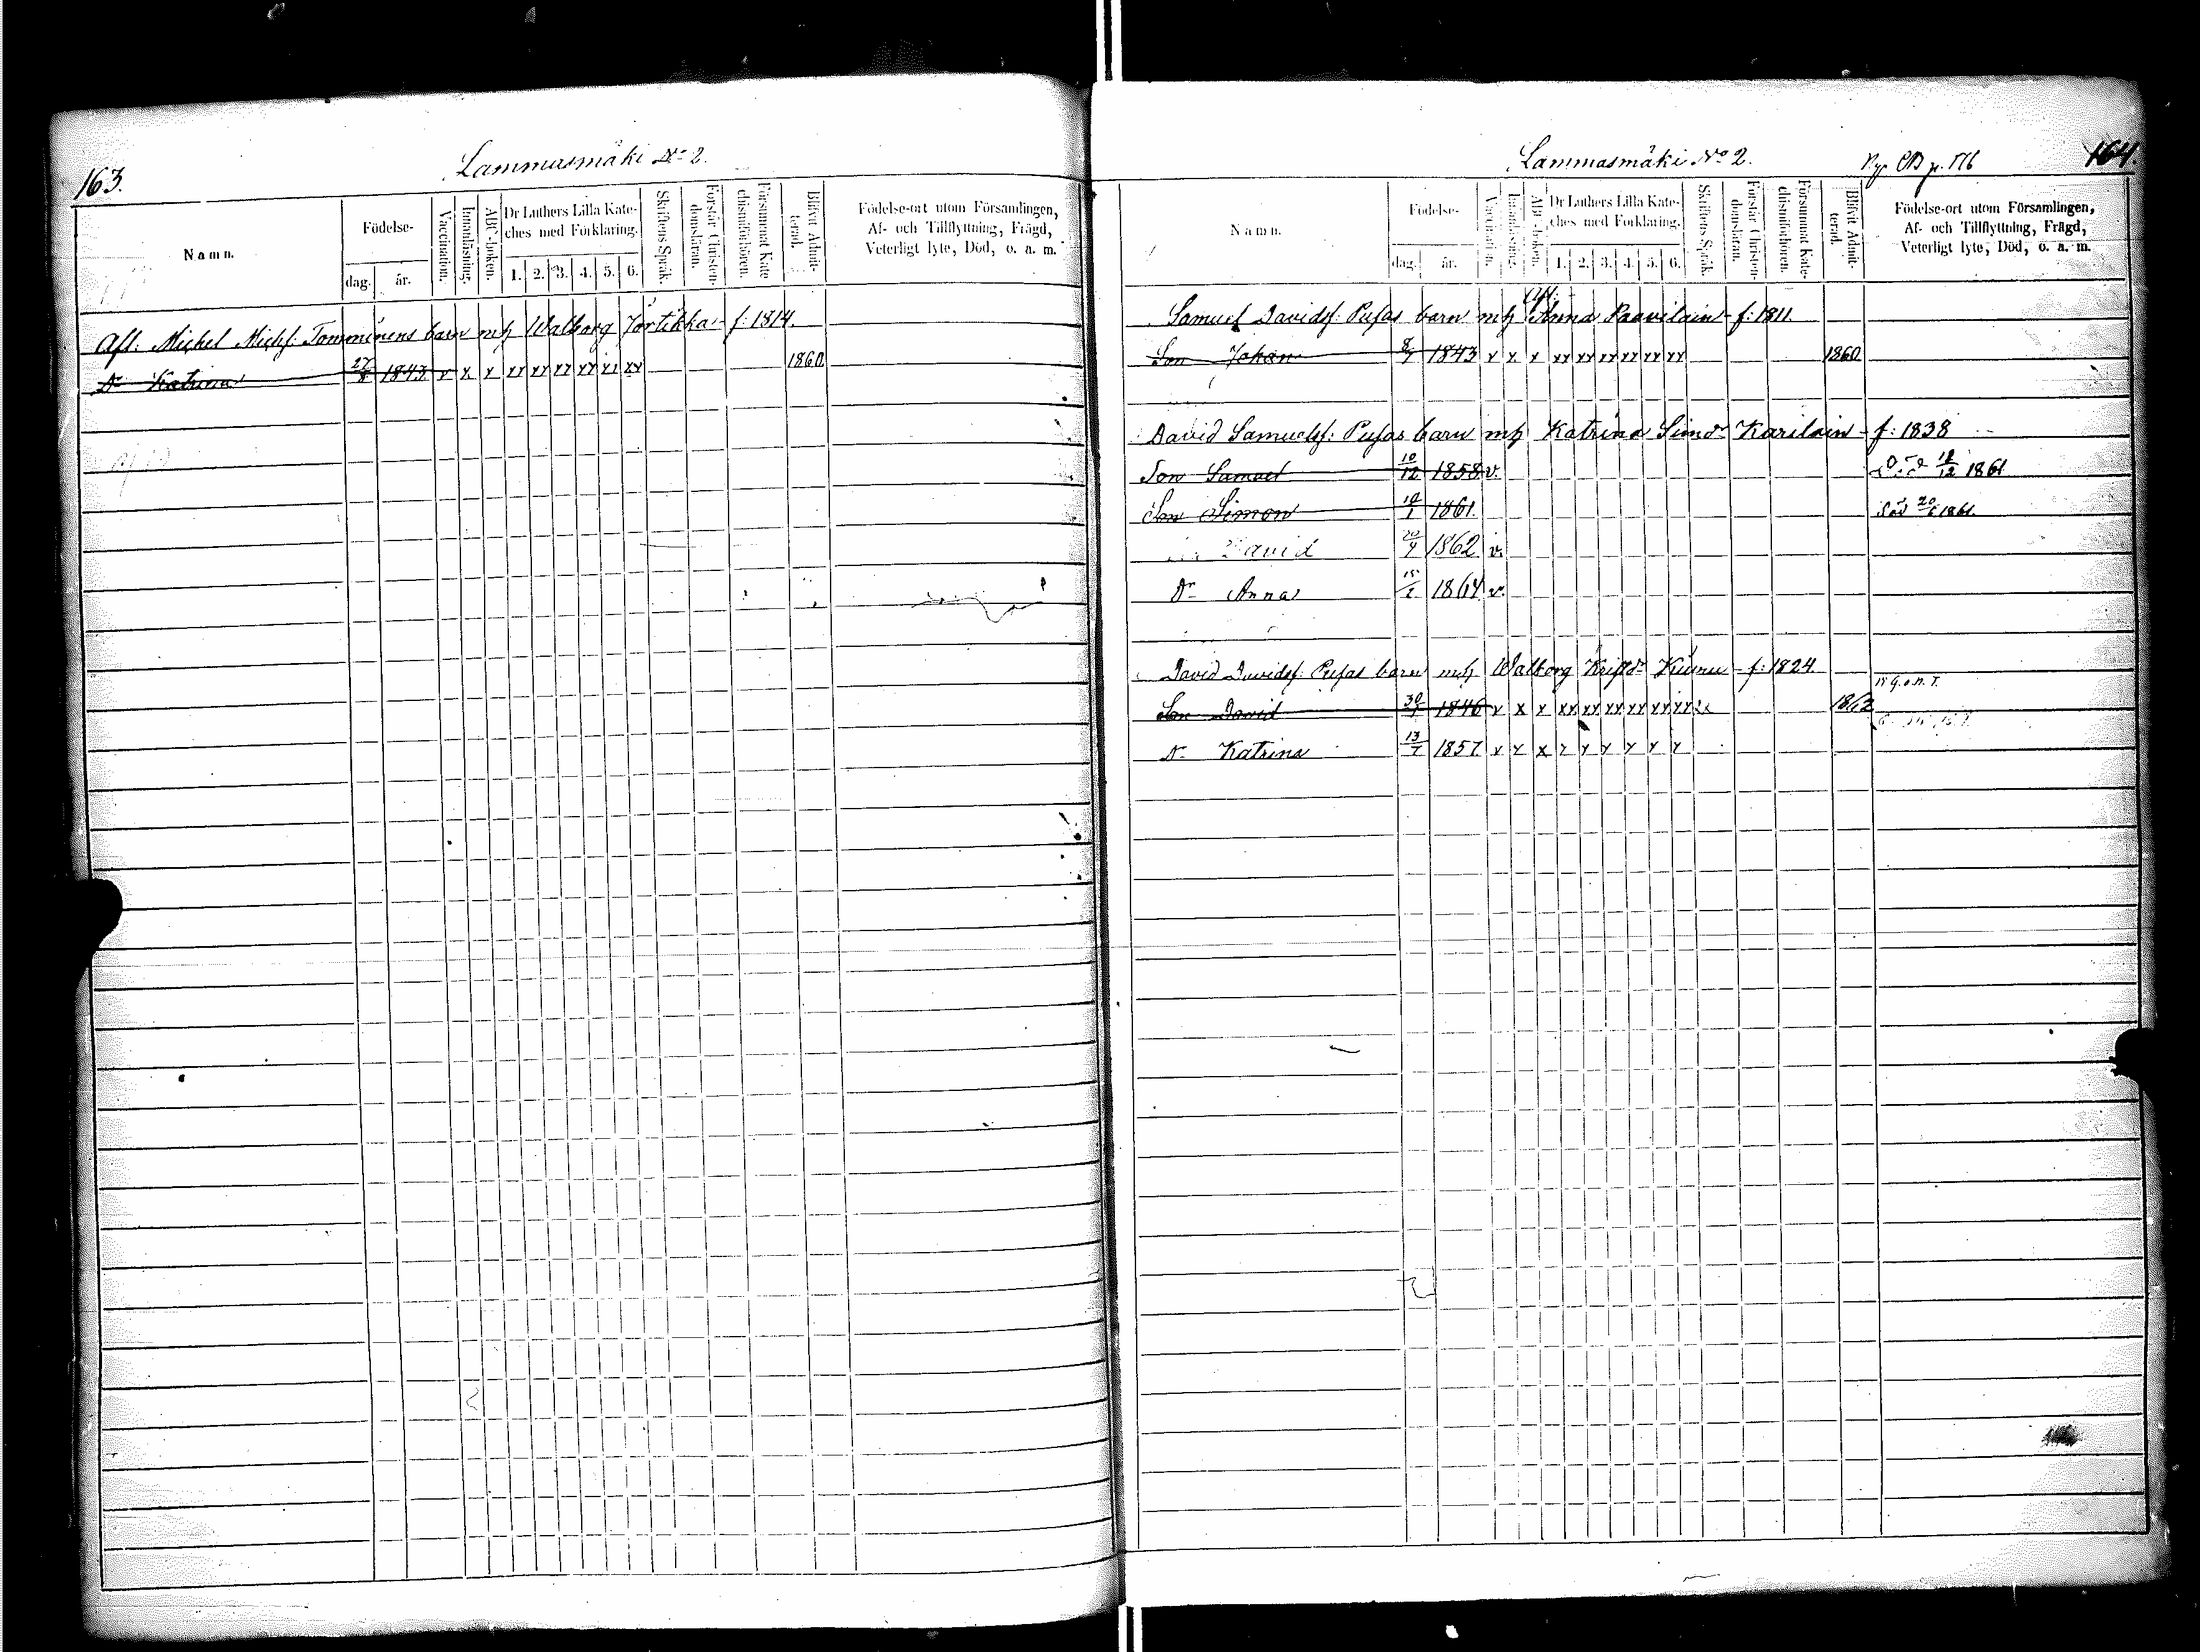 163.
Lammasmäki No 2.
Namn.
Födelse-
dag.
år.
Vaccination.
Innanläsning.
ABC-boken.
Dr Luthers Lilla Kate-
ches med Förklaring.
1. 2. 3. 4. 5. 6.
Skriftens Språk.
Förstår Christen-
domsläran.
Försummat Kate-
chismiförhören.
Blifvit Admit-
terad.
Födelse-ort utom Församlingen,
Af- och Tillflyttning, Frägd,
Veterligt lyte, Död, o. a. m.
Afl. Michel Michs: Tomminens barn mh Walborg Törtikka f: 1814.
Dr Katrina 27/8 1843 v x x xx xx xx xx xx xx 1860
Lammasmäki No 2.
Ny CB p. 176
164.
Namn.
Födelse-
dag.
år.
Vaccination.
Innanläsning.
ABC-boken.
Dr Luthers Lilla Kate-
ches med Förklaring.
1. 2. 3. 4. 5. 6.
Skriftens Språk.
Förstår Christen-
domsläran.
Försummat Kate-
chismiförhören.
Blifvit Admit-
terad.
Födelse-ort utom Församlingen,
Af- och Tillflyttning, Frägd,
Veterligt lyte, Död, o. a. m.
Samuel Davids: Pufas barn mh Anna Paavilain f: 1811
Son Johan 8/7 1843 v x x xx xx xx xx xx xx 1860
David Samuels: Pufas barn mh Katrina Simsdr Karilain f: 1838
Son Samuel 10/12 1858 v. Död 12/12 1861
Son Simon 19/1 1861. Död 1861.
David 20/9 1862 v.
Dr Anna 1864 v.
David Davids: Pufas barn mh Walborg Kristdr f: 1824
Son David 1846 v x x xx xx xx xx xx xx 1862
Dr Katrina 13/7 1857 v x x x x x x x x